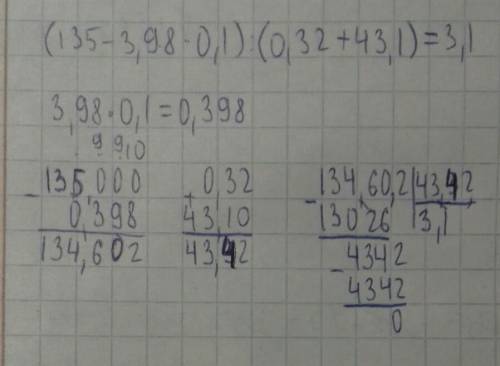 (135-3,98·0,1):(0,32+43,1)=3,1
3,98·0,1=0,398
9 9 10
- 135,000
0,398
134,602
+ 0,32
43,10
43,42
- 134,60,2 | 43,42
13026 | 3,1
- 4342
4342
0